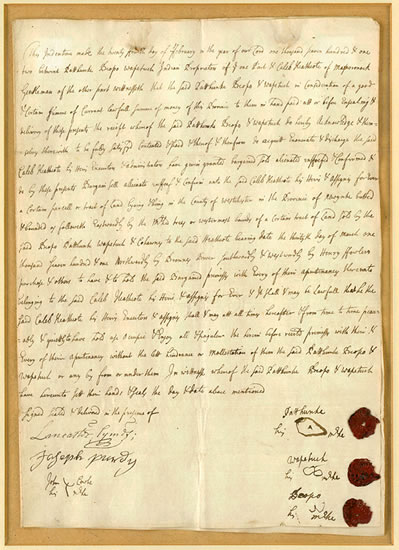 This Indenture made the twenty day of February in the year of our Lord one thousand seven hundred & one
two between Patthunke Beopo wapetuck Indian Proprietors of ye one Part & Caleb Heathcote of Mamaroneck
Gentleman of the other part witnesseth that the said Patthunke Beopo & wapetuck in consideration of a good
& Certain Summe of Currant lawfull money of this Province to them in hand paid att or before Ensealing &
delivery of these presents the receipt whereof the said Patthunke Beopo & wapetuck do hereby Acknowledge & them
selves therewith to be fully Satisfied Contented & paid & thereof & therefrom do acquitt Exonerate & discharge the said
Caleb Heathcote his heirs Executors & administrators have given granted bargained Sold alienated & Confirmed &
do by these presents Bargain Sell alienate & Confirm unto the said Caleb Heathcote his heirs & assigns for ever
a Certain parcell or tract of land lying & being in the County of westchester in the Province of Newyorke butted
& bounded as followeth Eastwardly by the trees or westermost bounds of a certain tract of land sold by the
said Beopo Patthunke wapetuck & to the said Heathcote bearing date the day of march one
thousand seaven hundred & one Northwardly by Brunxes River southwardly & westwardly by Henry ffowlers
purchase & others to have & to hold the said Bargained premises with Every of their apurtinancy thereunto
belonging to the said Caleb Heathcote his heirs & assigns for Ever & It shall & may be lawfull that he the
said Caleb Heathcote his heirs Executors & assigns shall & may att all times hereafter from time to time peace
ably & quietly to have hold use occupie & Enjoy all & singular the herein before recited premises with their &
Every of their apurtinancy without the lett hindrance or mollestation of them the said Patthunke Beopo &
wapetuck or any by from or under them In witnesse whereof the said Patthunke Beopo & wapetuck
have hereunto sett their hands & seals the day & date above mentioned
Signed Sealed & delivered in the presence of
Patthunke
his marke
Lancaster
Joseph Purdy
wapetuck
his marke
John Cooke
his marke
Beopo
his marke